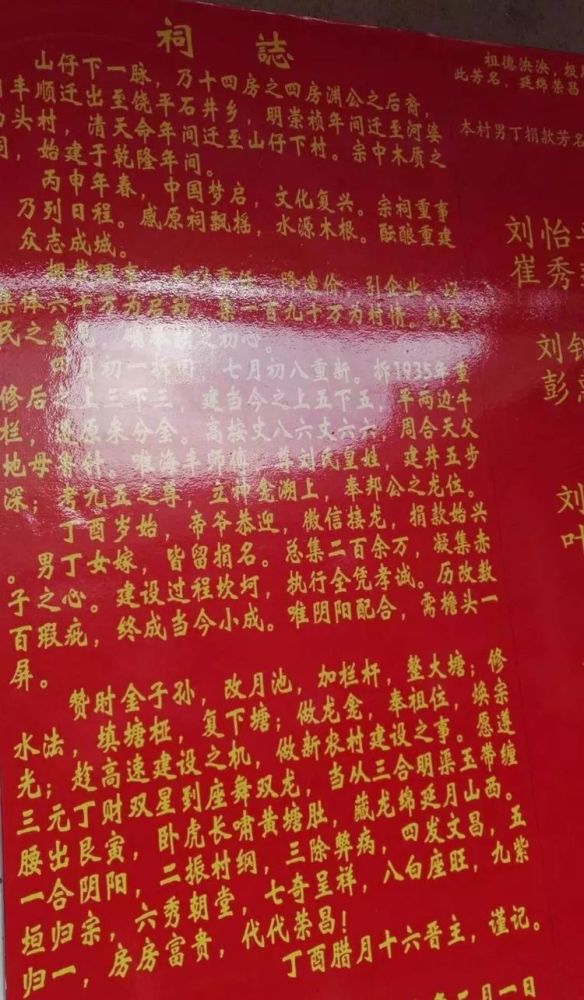 祠誌
山仔下一脉，乃十四房之四房渊公之后裔，
丰顺迁出至饶平石井乡，明崇祯年间迁至河婆
头村，清天命年间迁至山仔下村。宗中木质之
祠，始建于乾隆年间。
丙申年春，中国梦启，文化复兴。宗祠重事
乃列日程。感原祠飘摇，水源木根。酝酿重建
众志成城。
降造价，引企业。以
集体六十万为启动，集一百九十万为村情。统全
民之意见，之初心。
四月初一拆旧，七月初八重新。拆1935年重
修后之上三下三，建当今之上五下五，平两边牛
栏，原来分金。高按丈八六丈六一，周合天父
地母，唯海丰师傅，尊刘氏皇娃，建井五步
深；考九五之尊，立神龛溯上，奉邦公之龙位。
丁酉岁始，帝爷恭迎，微信接龙，捐款始兴
。男丁女嫁，皆留捐名。总集二百余万，凝集赤
子之心。建设过程坎坷，执行全凭孝诚。历改数
百瑕疵，终成当今小成。唯阴阳配合，需檐头一
屏。
赞时金子孙，改月池，加栏杆，整大塘；修
水法，填塘桠，复下塘；做龙龛，奉祖位，焕宗
光；趁高速建设之机，做新农村建设之事。愿遵
三元丁财双星到座舞双龙，当从三合明渠玉带缠
腰出艮寅，卧虎长啸黄塘肚，藏龙绵延月山西。
一合阴阳，二振村纲，三除弊病，四发文昌，五
垣归宗，六秀朝堂，七奇呈祥，八白座旺，九紫
归一，房房富贵，代代荣昌！
丁酉腊月十六晋主，谨记。
月一日
祖德泱泱，
此芳名，延绵荣昌
本村男丁捐款芳名
刘怡
崔秀
刘
彭
刘
叶